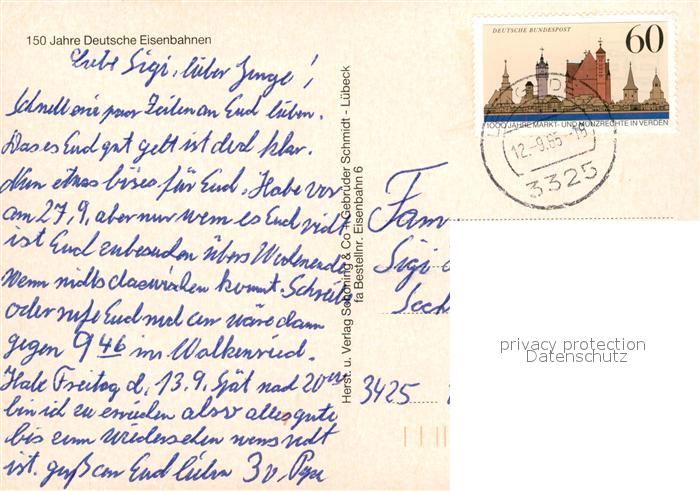 150 Jahre Deutsche Eisenbahnen
Liebe Sigi, lieber Junge!
Schnell ein paar Zeilen an Euch lieben.
Das es Euch gut geht ist doch klar.
Nun etwas böses für Euch. Habe vor
am 27,9, aber nur wenn es Euch recht
ist Euch zubesuchen übers Wochenende
Wenn nichts dazwischen kommt. Schreibe
oder rufe Euch mal an wäre dann
gegen 9 46 in Walkenried.
Freitag d, 13.9. Spät nach 20
bin ich zu alles gute
bis zum wiedersehen wenns recht
ist. gruß an Euch lieben
Herst. u. Verlag Schöning & Co + Gebrüder Schmidt - Lübeck
fa Bestellnr. Eisenbahn 6
DEUTSCHE BUNDESPOST
60
1000 JAHRE MARKT- UND MÜNZRECHTE IN VERDEN
12.-9.85-18
3325
Fam
Sigi
3425
privacy protection
Datenschutz